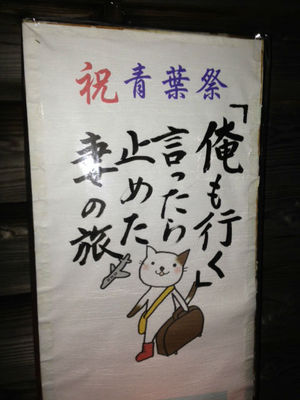 祝青葉祭
「俺も行く」
言ったら
止めた
妻の旅